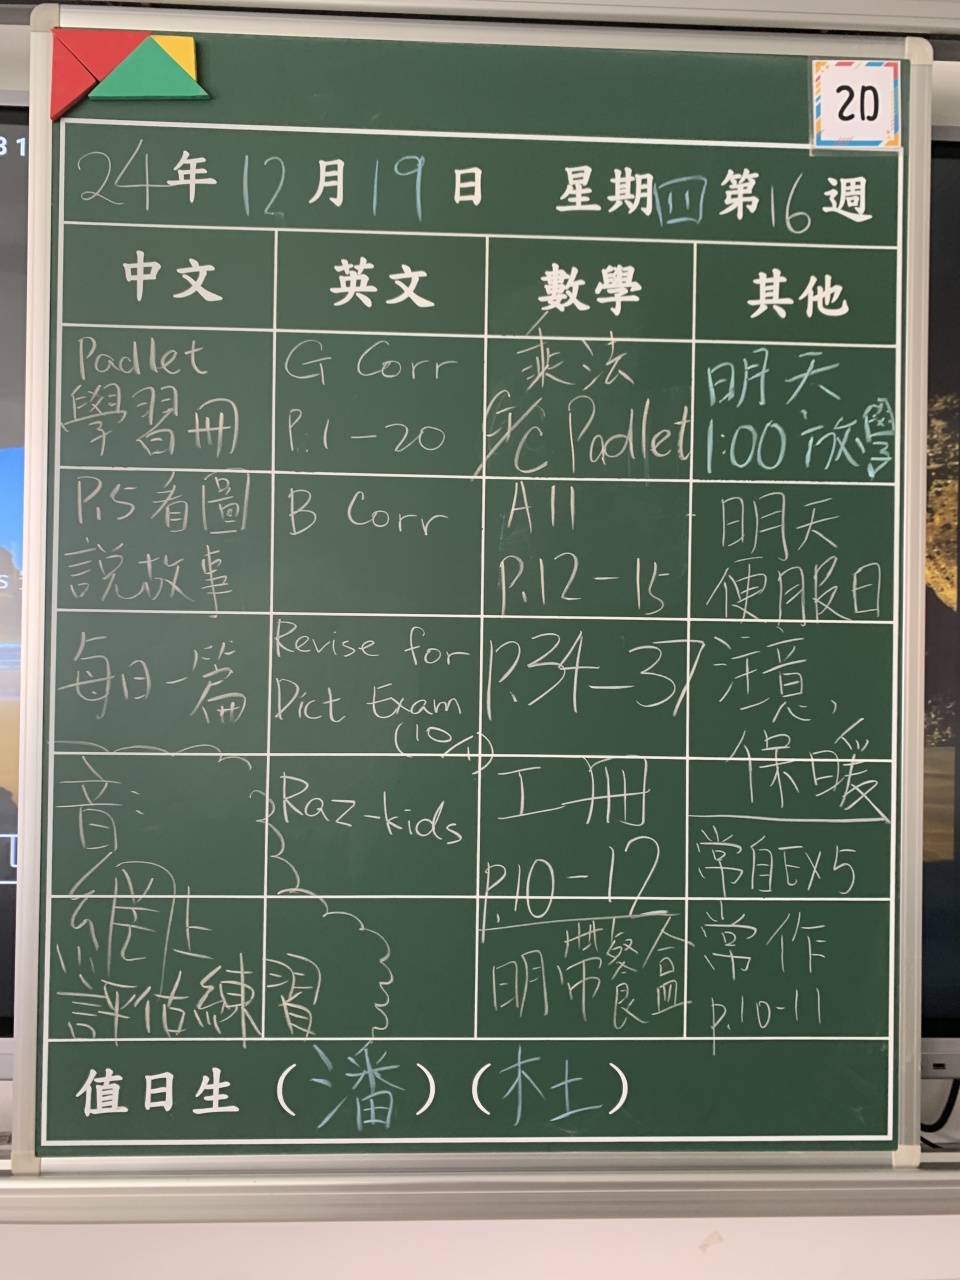 2D
24年12月19日 星期四第16週
中文 英文 數學 其他
Padlet
學習冊
G Corr
P.1-20
乘法
G/C Padlet
明天
1:00放學
P.5看圖
說故事
B Corr
A11
P.12-15
明天
便服日
每日一篇
Revise for
Dict Exam
(10/1)
P.34-37
注意,
保暖
音:
Raz-kids
工冊
P.10-17
常自EX5
網上
評估練習
明帶餐盒
常作
p.10-11
值日生(潘)(杜)